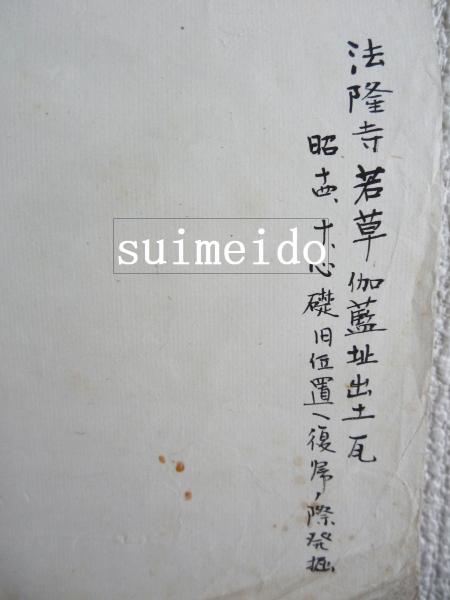 法隆寺若草伽藍址出土瓦
昭十四、十、心礎旧位置ヘ復帰ノ際発掘
suimeido